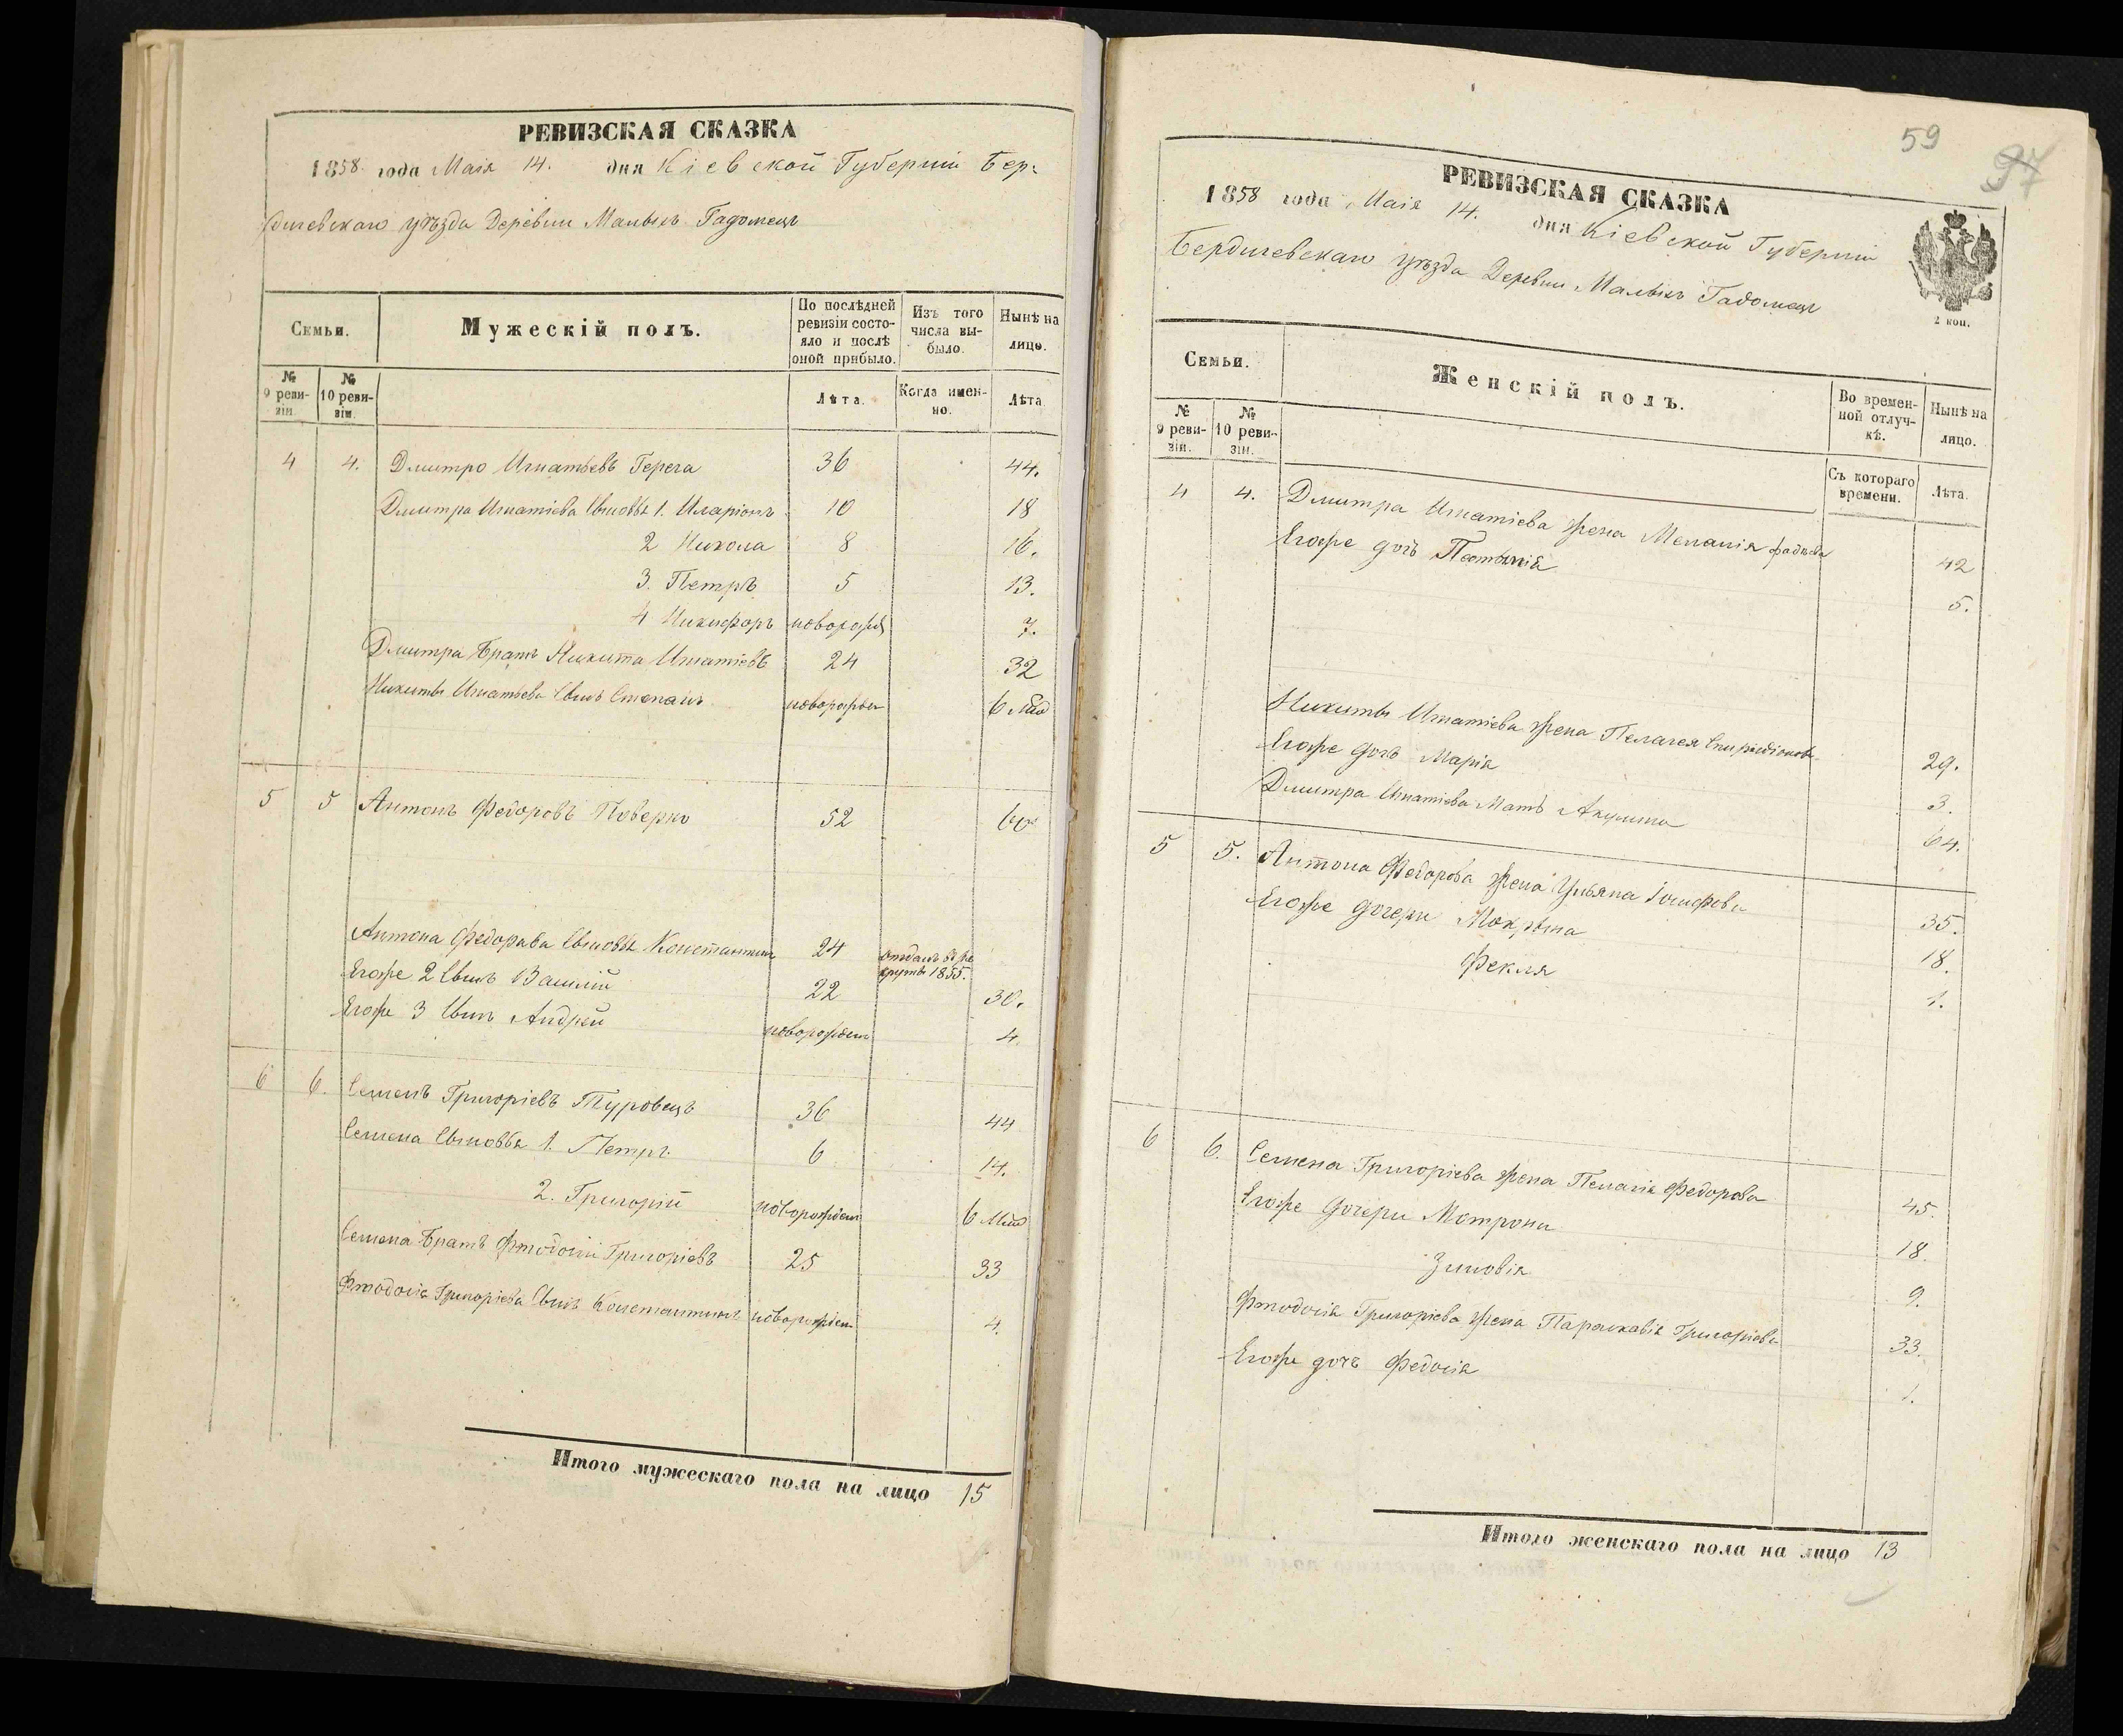 РЕВИЗСКАЯ СКАЗКА
1858 года Маія 14. дня Кіевской Губерніи Бер-
дичевскаго уѣзда Деревни Малыхъ Гадомецъ
Семьи.
Мужескій полъ.
По послѣдней ревизіи состояло и послѣ оной прибыло.
Изъ того числа выбыло.
Нынѣ на лицо.
№ 9 ревизіи.
№ 10 ревизіи.
Лѣта.
Когда именно.
Лѣта
4 4. Дмитро Игнатьевъ Герега 36 44.
Дмитра Игнатіева Сыновья 1. Иларіонъ 10 18
2 Никола 8 16.
3. Петръ 5 13.
4 Никифоръ новорожд 7.
Дмитра Братъ Никита Игнатіевъ 24 32
Никиты Игнатьева Сынъ Степанъ новорожден 6 Мѣс
5 5 Антонъ Федоровъ Поверко 52 60
Антона Федорова Сыновья Константинъ 24 отданъ въ рекруты 1855.
Егоже 2 Сынъ Василій 22 30.
Егоже 3 Сынъ Андрей новорожден 4.
6 6. Семенъ Григоріевъ Туровецъ 36 44
Семена Сыновья 1. Петръ 6 14.
2. Григорій новорожден 6 Мѣс
Семена Братъ Фтодосій Григоріевъ 25 33
Фтодосія Григоріева Сынъ Константинъ новорожден 4.
Итого мужескаго пола на лицо 15
59
97
РЕВИЗСКАЯ СКАЗКА
1858 года Маія 14. дня Кіевской Губерніи
Бердичевскаго уѣзда Деревни Малыхъ Гадомецъ
2 коп.
Семьи.
Женскій полъ.
Во временной отлучкѣ.
Нынѣ на лицо.
№ 9 ревизіи.
№ 10 ревизіи.
Съ котораго времени.
Лѣта.
4 4. Дмитра Игнатіева жена Меланія 42
Егоже дочь 5.
Никиты Игнатіева жена Пелагея Спиридонова 29.
Егоже дочь Марія 3.
Дмитра Игнатіева Мать Акулина 64.
5 5. Антона Федорова жена Ульяна Іосифова 35.
Егоже дочери Мокрына 18.
Фекля 1.
6 6. Семена Григоріева жена Пелагія Федорова 45.
Егоже дочери Мотрона 18.
Зиновія 9.
Фтодосія Григоріева жена Параскавія Григоріева 33.
Егоже дочь Федосія 1.
Итого женскаго пола на лицо 13